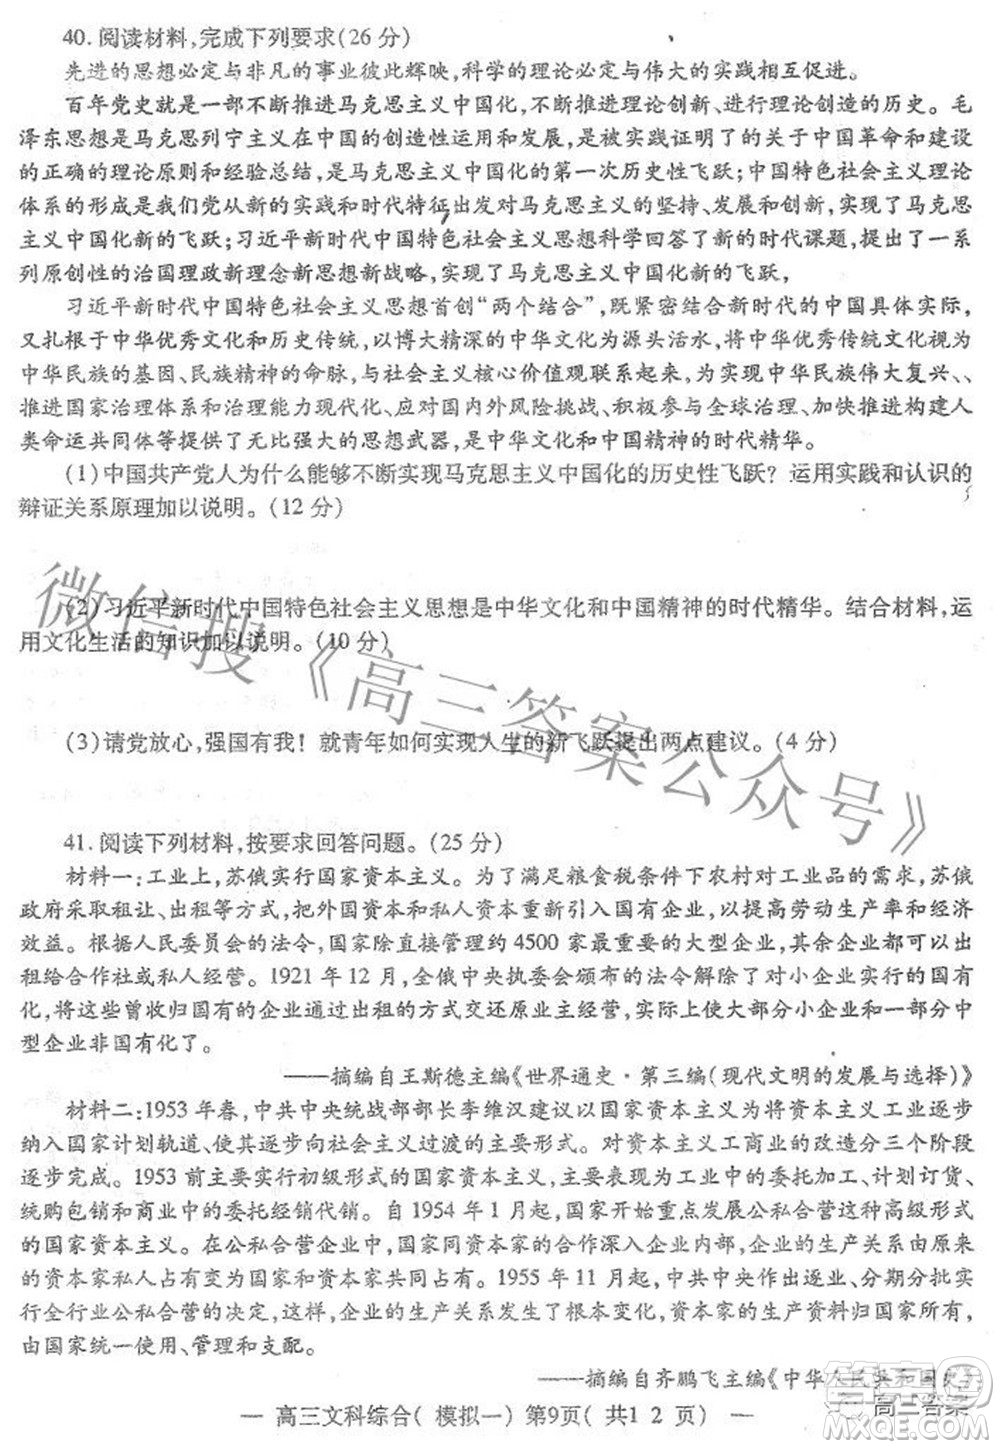 40. 阅读材料,完成下列要求(26 分)
先进的思想必定与非凡的事业彼此辉映,科学的理论必定与伟大的实践相互促进。
百年党史就是一部不断推进马克思主义中国化,不断推进理论创新、进行理论创造的历史。毛
泽东思想是马克思列宁主义在中国的创造性运用和发展,是被实践证明了的关于中国革命和建设
的正确的理论原则和经验总结,是马克思主义中国化的第一次历史性飞跃;中国特色社会主义理论
体系的形成是我们党从新的实践和时代特征出发对马克思主义的坚持、发展和创新,实现了马克思
主义中国化新的飞跃;习近平新时代中国特色社会主义思想科学回答了新的时代课题,提出了一系
列原创性的治国理政新理念新思想新战略,实现了马克思主义中国化新的飞跃,
习近平新时代中国特色社会主义思想首创“两个结合”,既紧密结合新时代的中国具体实际,
又扎根于中华优秀文化和历史传统,以博大精深的中华文化为源头活水,将中华优秀传统文化视为
中华民族的基因、民族精神的命脉,与社会主义核心价值观联系起来,为实现中华民族伟大复兴、、
推进国家治理体系和治理能力现代化、应对国内外风险挑战、积极参与全球治理、加快推进构建人
类命运共同体等提供了无比强大的思想武器,是中华文化和中国精神的时代精华。
(1)中国共产党人为什么能够不断实现马克思主义中国化的历史性飞跃? 运用实践和认识的
辩证关系原理加以说明。(12 分)
(2)习近平新时代中国特色社会主义思想是中华文化和中国精神的时代精华。结合材料,运
用文化生活的知识加以说明。(10 分)
(3)请党放心,强国有我! 就青年如何实现人生的新飞跃提出两点建议。(4 分)
41. 阅读下列材料,按要求回答问题。(25 分)
材料一:工业上,苏俄实行国家资本主义。为了满足粮食税条件下农村对工业品的需求,苏俄
政府采取租让、出租等方式,把外国资本和私人资本重新引入国有企业,以提高劳动生产率和经济
效益。根据人民委员会的法令,国家除直接管理约 4500 家最重要的大型企业,其余企业都可以出
租给合作社或私人经营。1921 年 12 月,全俄中央执委会颁布的法令解除了对小企业实行的国有
化,将这些曾收归国有的企业通过出租的方式交还原业主经营,实际上使大部分小企业和一部分中
型企业非国有化了。
——摘编自王斯德主编《世界通史·第三编(现代文明的发展与选择)》
材料二:1953 年春,中共中央统战部部长李维汉建议以国家资本主义为将资本主义工业逐步
纳入国家计划轨道、使其逐步向社会主义过渡的主要形式。对资本主义工商业的改造分三个阶段
逐步完成。1953 前主要实行初级形式的国家资本主义,主要表现为工业中的委托加工、计划订货、
统购包销和商业中的委托经销代销。自 1954 年 1 月起,国家开始重点发展公私合营这种高级形式
的国家资本主义。在公私合营企业中,国家同资本家的合作深入企业内部,企业的生产关系由原来
的资本家私人占有变为国家和资本家共同占有。1955 年 11 月起,中共中央作出逐业、分期分批实
行全行业公私合营的决定,这样,企业的生产关系发生了根本变化,资本家的生产资料归国家所有,
由国家统一使用、管理和支配。
——摘编自齐鹏飞主编《中华人民共和国史》
— 高三文科综合( 模拟一) 第9页( 共1 2 页) —
微信搜《高三答案公众号》
高三答案